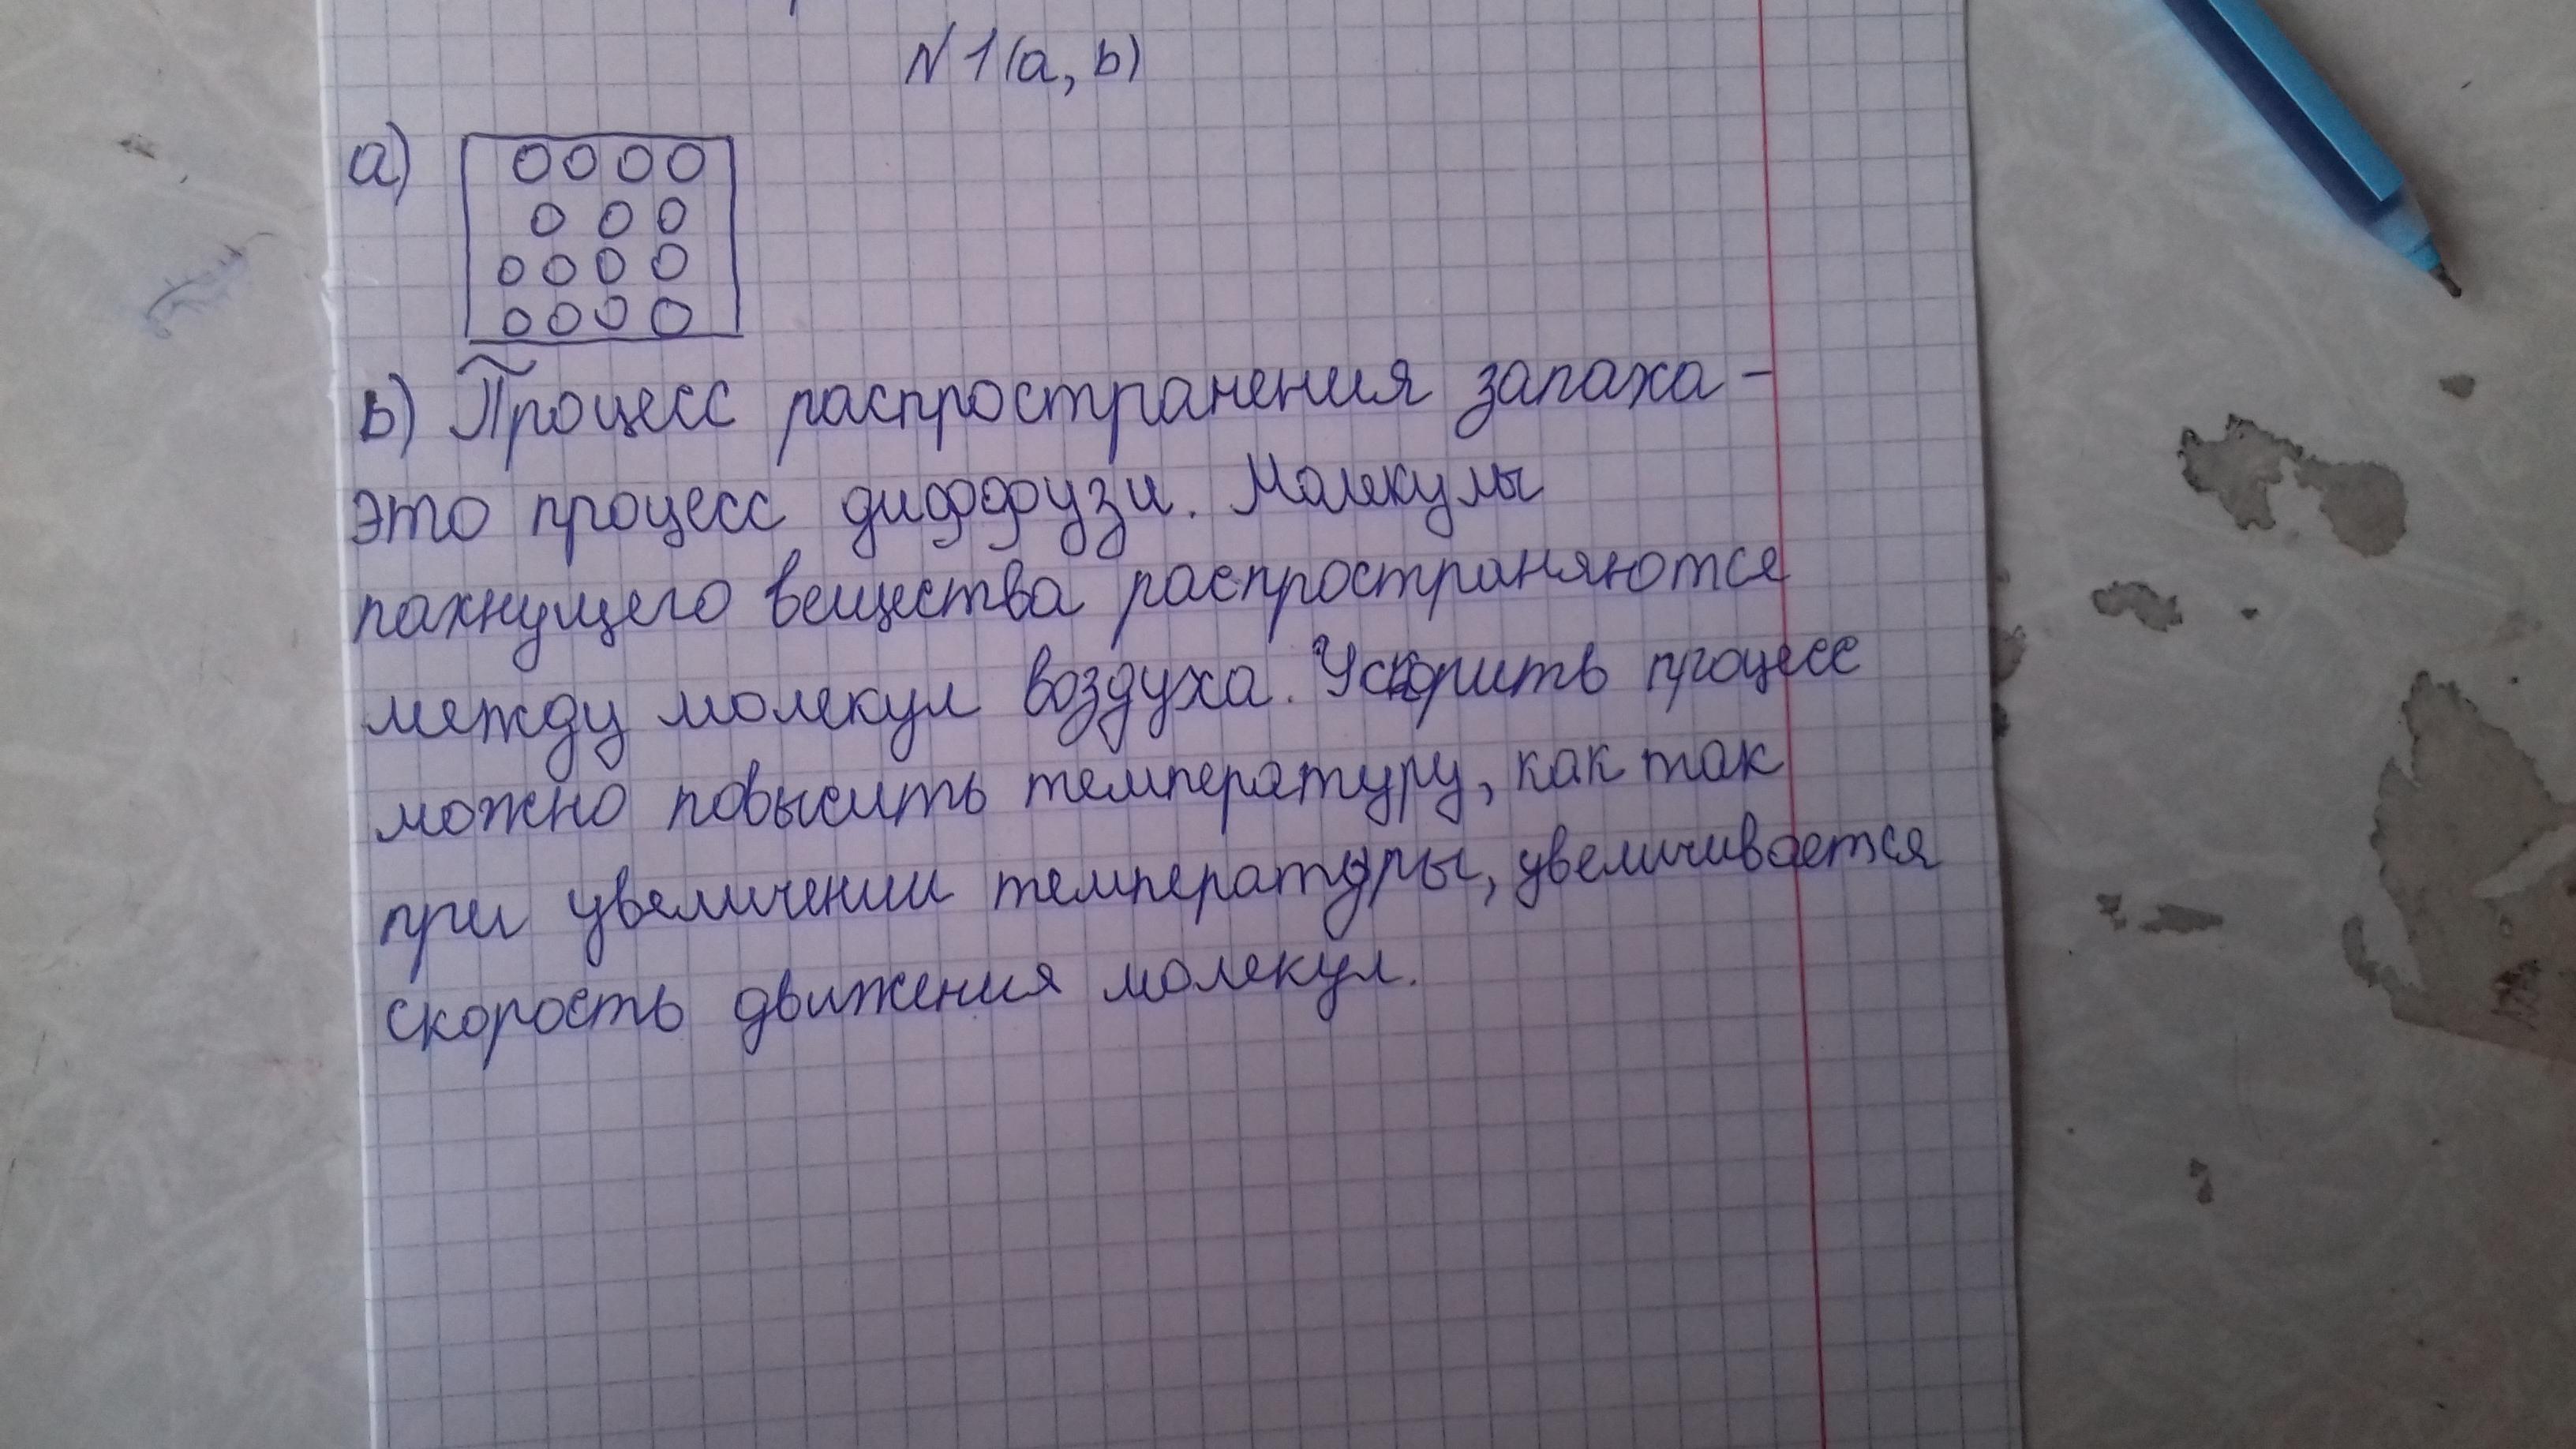 N1(a, b)
а)
b) Процесс распространения запаха -
это процесс диффузи. Молекулы
пахнущего вещества распространяются
между молекул воздуха. Ускорить процесс
можно повысить температуру, как так
при увеличении температуры, увеличивается
скорость движения молекул.